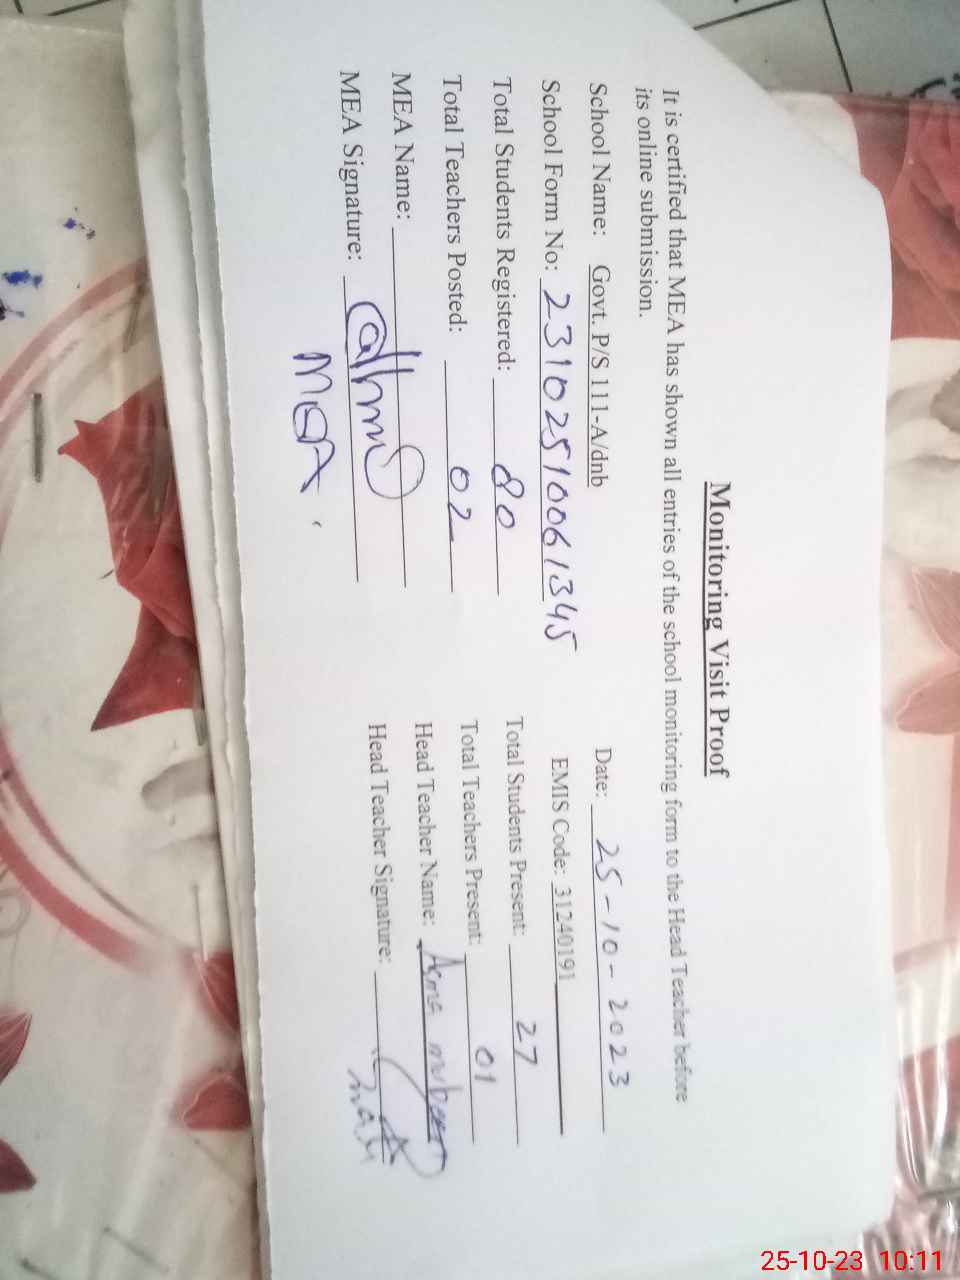 Monitoring Visit Proof
It is certified that MEA has shown all entries of the school monitoring form to the Head Teacher before
its online submission.
School Name: Govt. P/S 111-A/dnb
Date: 25-10-2023
School Form No: 23102510061345
EMIS Code: 31240191
Total Students Registered: 80
Total Students Present: 27
Total Teachers Posted: 02
Total Teachers Present: 01
MEA Name:
Head Teacher Name:
MEA Signature:
Head Teacher Signature:
MEA
25-10-23 10:11